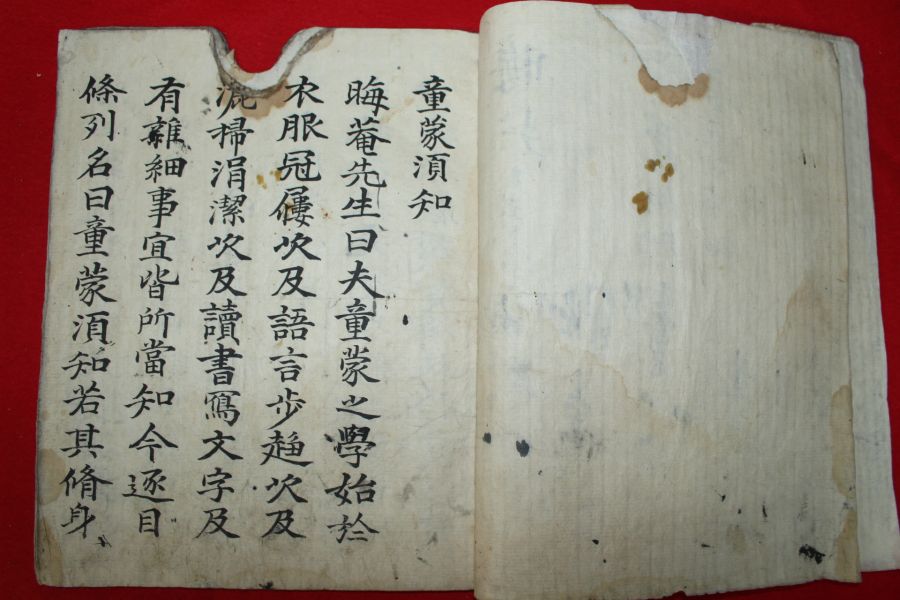 童蒙湏知
晦菴先生曰夫童蒙之學始於
衣服冠屨次及語言步趍次及
洒掃涓潔次及讀書寫文字及
有雜細事宜皆所當知今逐目
條列名曰童蒙湏知若其脩身